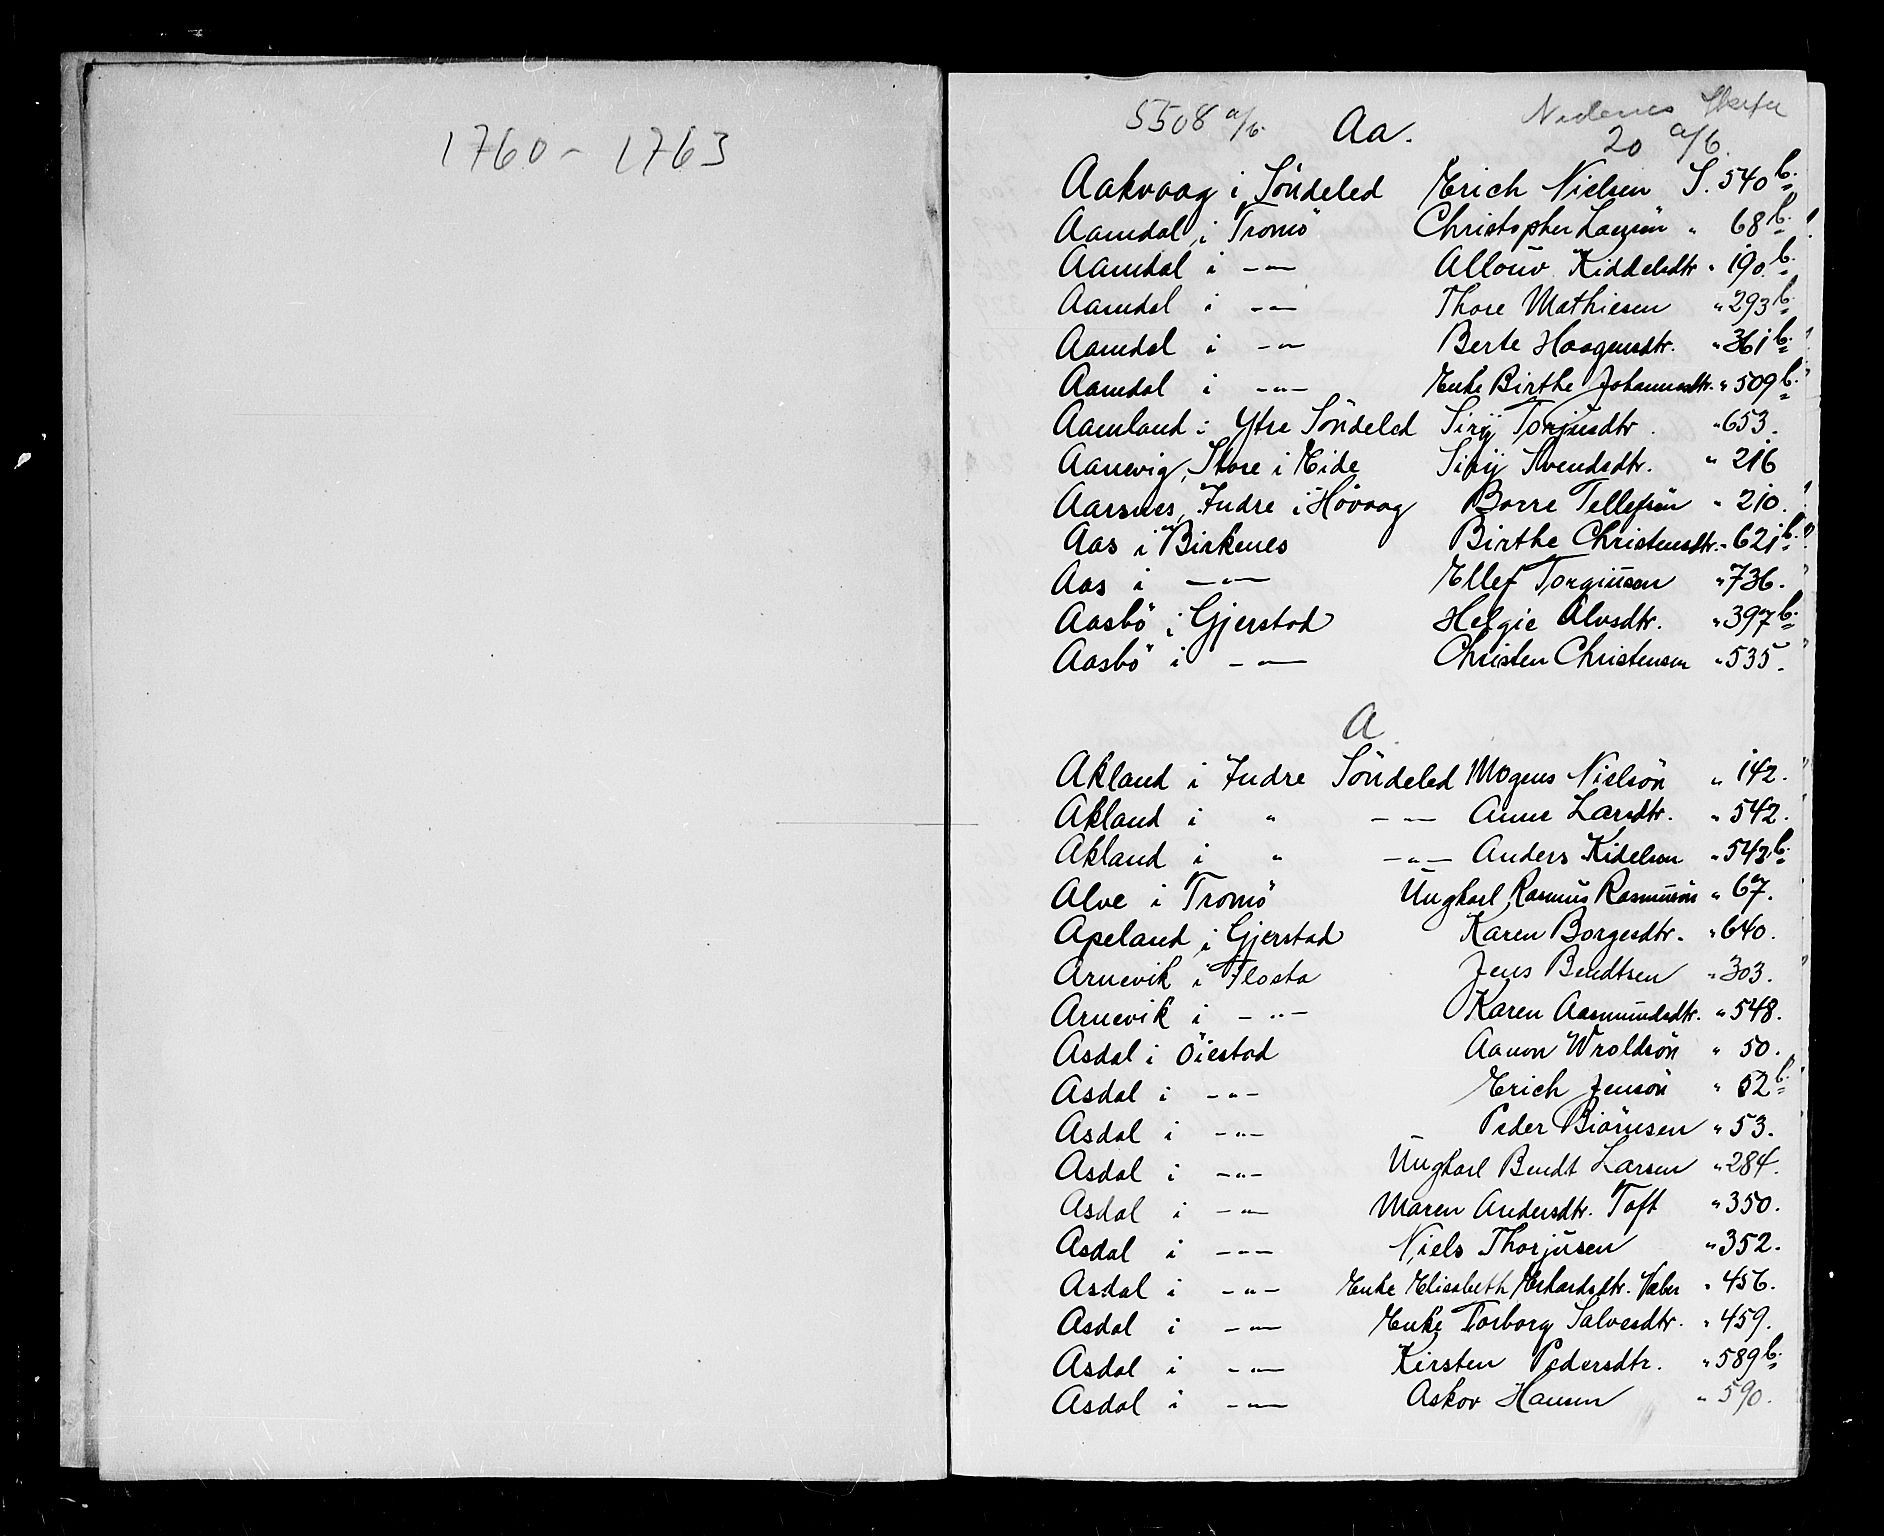 1760 - 1763
5508 a/b. Aa. Nedenes
20 a/b.
Aakvaag i Söndeled Erich Nielsen S. 540 b.
Aamdal i Tromö Christopher " 68 b.
Aamdal i -"- Allouv Kiddelsdtr " 190 b.
Aamdal i -"- Thore Mathiesen " 293 b.
Aamdal i -"- Berte Haagensdtr. " 361 b.
Aamdal i -"- Enke Birthe Johannesdtr. " 509 b.
Aamland i Ytre Söndeled Sirij Torjusdtr. " 653.
Aanevig, Store i Eide Sirij Svendsdtr. " 216
Aarsnes, Indre i Hövaag Borre Tellefsön " 210.
Aas i Birkenes Birthe Christensdtr. " 621 b.
Aas i -"- Ellef Torgiusen " 736.
Aasbö i Gjerstad Helgie Alvsdtr. " 397 b.
Aasbö i -"- Christen Christensen " 535.
A
Akland i Indre Söndeled Mogens Nielsön " 142.
Akland i " -"- Anne Larsdtr. " 542.
Akland i " -"- Anders Kidelsen " 542 b.
Alve i Tromö Ungkarl Rasmus Rasmusön " 67.
Apeland i Gjerstad Karen Borgesdtr. " 640.
Arnevik i Flosta Jens Bendtsen " 303.
Arnevik i -"- Karen Aasmundsdtr. " 548.
Asdal i Öiestad Aanon Wroldsön " 50.
Asdal i -"- Erich Jensön " 52 b.
Asdal i -"- Peder Biörnsen " 53.
Asdal i -"- Ungkarl Bendt Larsen " 284.
Asdal i -"- Maren Andersdtr. Toft " 350.
Asdal i -"- Niels Thorjusen " 352.
Asdal i -"- Enke Elisabeth Erhardsdtr. " 456.
Asdal i -"- Enke Torborg Salvesdtr. " 459.
Asdal i -"- Kirsten Pedersdtr. " 589 b.
Asdal i -"- Askov Hansen " 590.